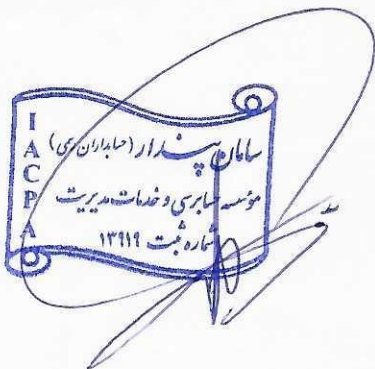 IACPA
سامان پندار (حسابداران رسمی)
مؤسسه حسابرسی و خدمات مدیریت
شماره ثبت ۱۳۹۱۹